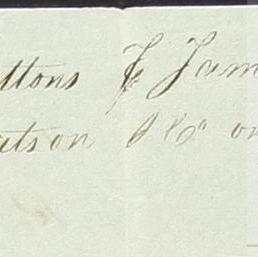 ttons & Jam
atson & Co on